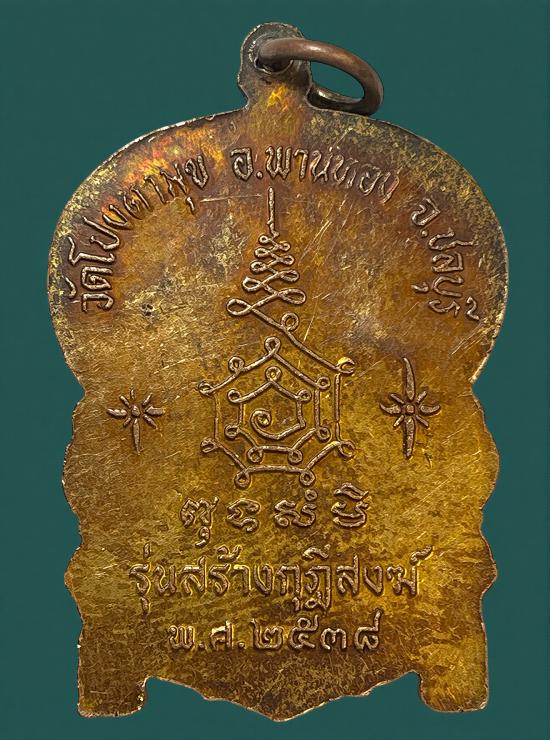 วัดโป่งตามุข อ.พานทอง จ.ชลบุรี
รุ่นสร้างกุฏีสงฆ์
พ.ศ.๒๕๓๘